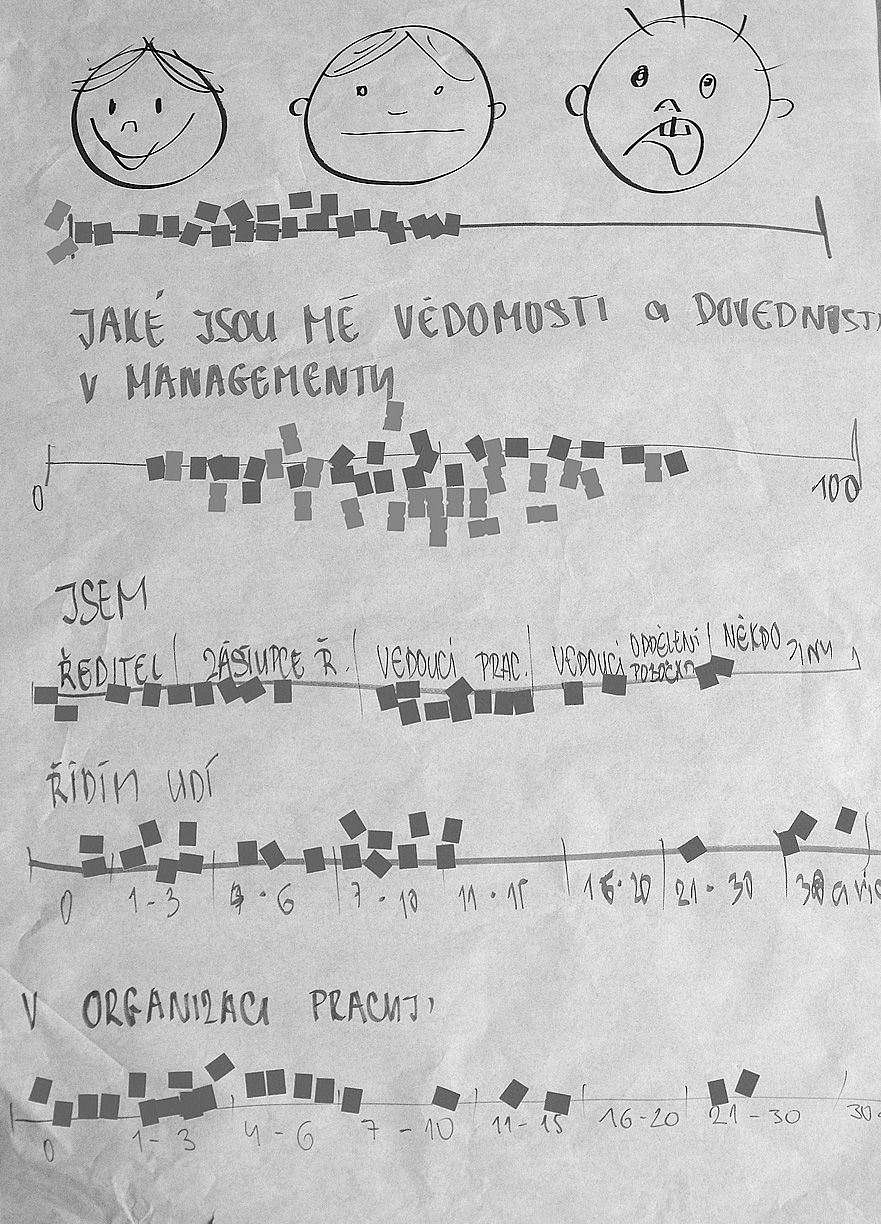 JAKÉ JSOU MÉ VĚDOMOSTI a DOVEDNOSTI
V MANAGEMENTU
0 100
JSEM
ŘEDITEL ZÁSTUPCE Ř. VEDOUCÍ PRAC. VEDOUCÍ ODDĚLENÍ POBOČKY NĚKDO JINÝ
ŘÍDÍM LIDÍ
0 1-3 4-6 7-10 11-15 16-20 21-30 30 a víc
V ORGANIZACI PRACUJI
0 1-3 4-6 7-10 11-15 16-20 21-30 30-